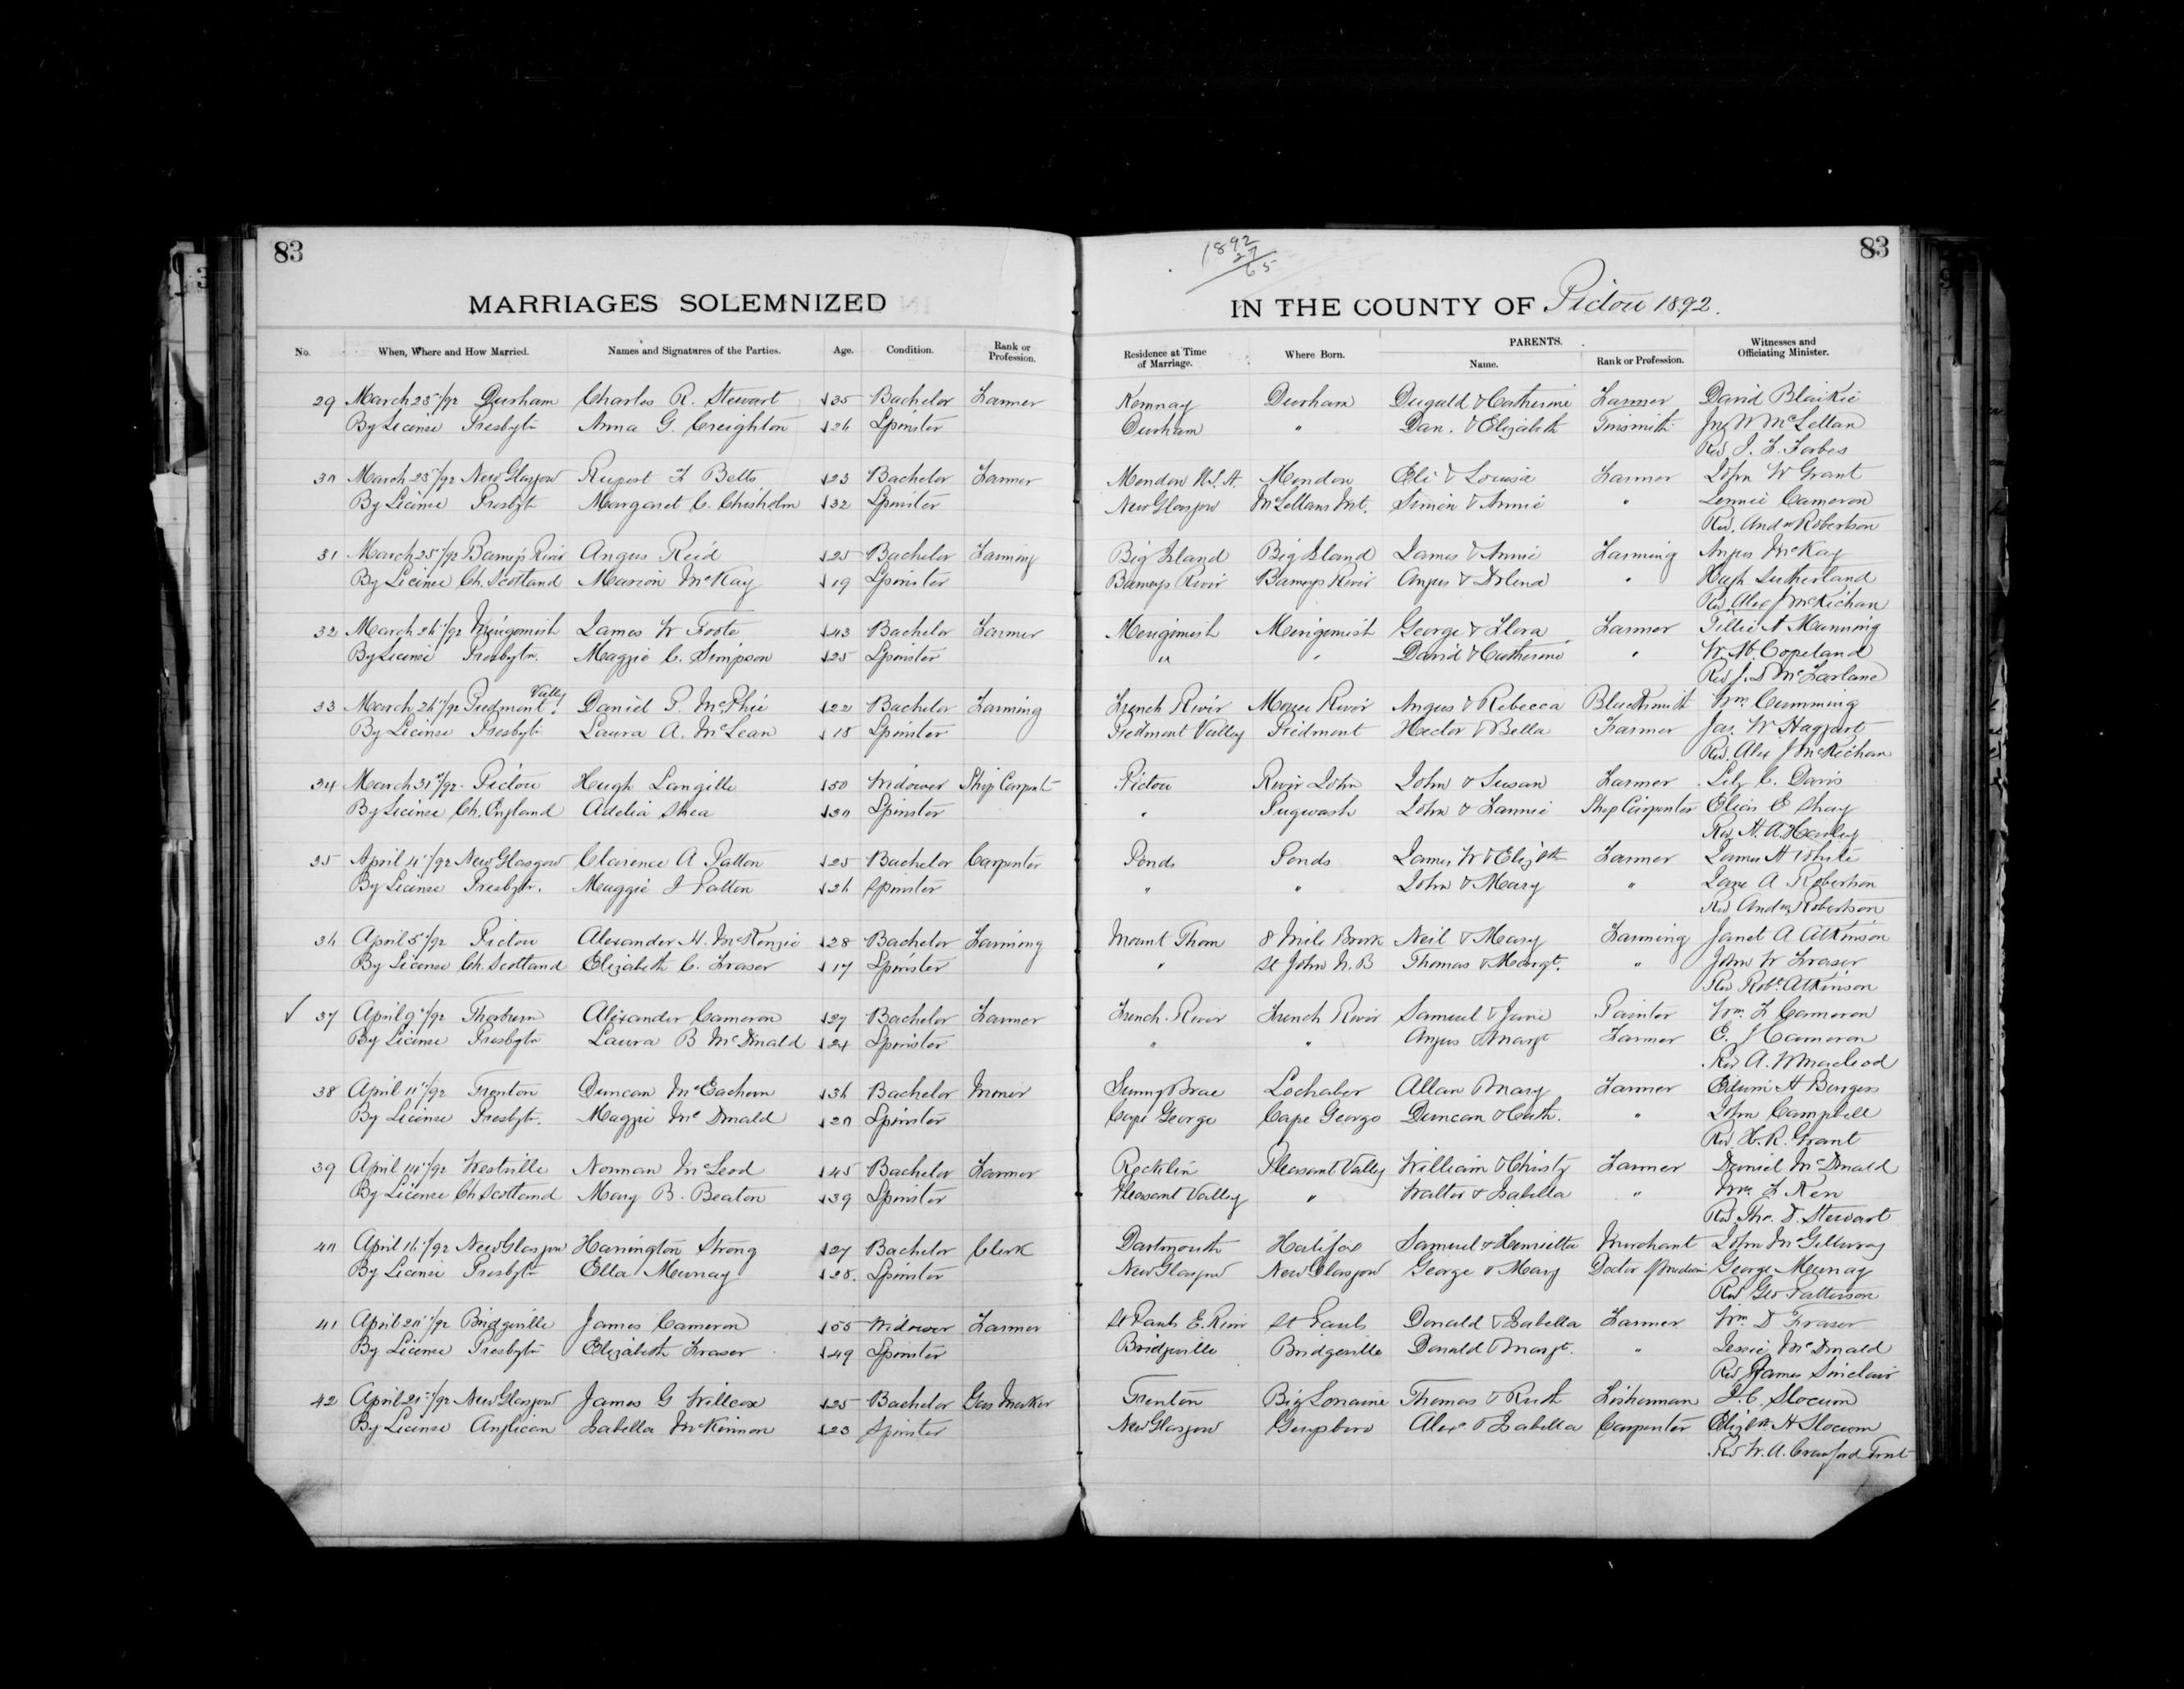 83
83
1892
27
65
MARRIAGES SOLEMNIZED IN THE COUNTY OF Pictou 1892.
No. When, Where and How Married. Names and Signatures of the Parties. Age. Condition. Rank or Profession. Residence at Time of Marriage. Where Born. PARENTS. Name. Rank or Profession. Witnesses and Officiating Minister.
29 March 23"/92 Durham Charles R. Stewart 35 Bachelor Farmer Kemnay Durham Dugald & Catherine Farmer David Blaikie
By License Presbytn Anna G. Creighton 26 Spinster Durham " Dan. & Elizabeth Tinsmith McLellan
Rev
30 March 23"/92 New Glasgow Rupert F Betts 23 Bachelor Farmer Mendon U.S.A. Mendon Eli & Louisa Farmer John W Grant
By License Presbyt Margaret C. Chisholm 32 Spinster New Glasgow McLellans Mt. Simon & Annie " Cameron
Rev. Andw Robertson
31 March 25"/92 Barneys River Angus Reid 25 Bachelor Farming Big Island Big Island James & Annie Farming Angus McKay
By License Ch. Scotland Marion McKay 19 Spinster Barneys River Barneys River Angus & " Hugh Sutherland
Rev. Alex J McKichan
32 March 26"/92 Merigomish James W Foote 43 Bachelor Farmer Merigomish Merigomish George & Flora Farmer Tillie A Manning
By License Presbytn. Maggie C. Simpson 25 Spinster " " David & Catherine " W. H. Copeland
Rev J. D McFarlane
33 March 26"/92 Piedmont Valley Daniel P. McPhie 22 Bachelor Farming French River Moose River Angus & Rebecca Blacksmith Wm Cumming
By License Presbytn Laura A. McLean 18 Spinster Piedmont Valley Piedmont Hector & Bella Farmer Jas. W Haggart
Rev. Alex J McKichan
34 March 31st/92 Pictou Hugh Langille 50 Widower Ship Carpent Pictou River John John & Susan Farmer Lily C. Davis
By License Ch. England Adelia Shea 30 Spinster " Pugwash John & Fannie Ship Carpenter
Rev H. A. Harley
35 April 4"/92 New Glasgow Clarence A Patton 25 Bachelor Carpenter Ponds Ponds James W & Elizbth Farmer James A White
By License Presbytn. Maggie J Patton 26 Spinster " " John & Mary " Jane A Robertson
Rev Andw Robertson
36 April 5"/92 Pictou Alexander H. McKenzie 28 Bachelor Farming Mount Thom 8 Mile Brook Neil & Mary Farming Janet A Atkinson
By License Ch. Scotland Elizabeth C. Fraser 17 Spinster " St John N.B Thomas & Margt. " John W Fraser
Rev Robt Atkinson
✓ 37 April 9"/92 Thorburn Alexander Cameron 27 Bachelor Farmer French River French River Samuel & Jane Painter Wm. F Cameron
By License Presbytn Laura B McDonald 24 Spinster " " Angus & Margt Farmer C. J Cameron
Rev A. W Macleod
38 April 11"/92 Trenton Duncan McEachern 36 Bachelor Miner Sunny Brae Lochaber Allan Mary Farmer Burgess
By License Presbytn. Maggie McDonald 20 Spinster Cape George Cape George Duncan & Cath. " John Campbell
Rev H. R. Grant
39 April 14"/92 Westville Norman McLeod 45 Bachelor Farmer Rocklin Pleasant Valley William & Christy Farmer Daniel McDonald
By License Ch Scotland Mary B. Beaton 39 Spinster Pleasant Valley " Walter & Isabella " Wm. F Kerr
Rev. Tho. D. Stewart
40 April 16"/92 New Glasgow Harrington Strong 27 Bachelor Clerk Dartmouth Halifax Samuel & Henrietta Merchant John McGillivray
By License Presbytn Ella Murray 28. Spinster New Glasgow New Glasgow George & Mary Doctor of Medicine George Murray
Rev Geo Patterson
41 April 20"/92 Bridgeville James Cameron 55 Widower Farmer St Pauls E. River St Pauls Donald & Isabella Farmer Wm D Fraser
By License Presbytn Elizabeth Fraser 49 Spinster Bridgeville Bridgeville Donald & Margt. " Jessie McDonald
Rev James Sinclair
42 April 21st/92 New Glasgow James G Willcox 25 Bachelor Gas Maker Trenton Big Lorraine Thomas & Ruth Fisherman J. C. Slocum
By License Anglican Isabella McKinnon 23 Spinster New Glasgow Guysboro Alexr & Isabella Carpenter Elizbth A Slocum
Rev W. A. Crawford Frost